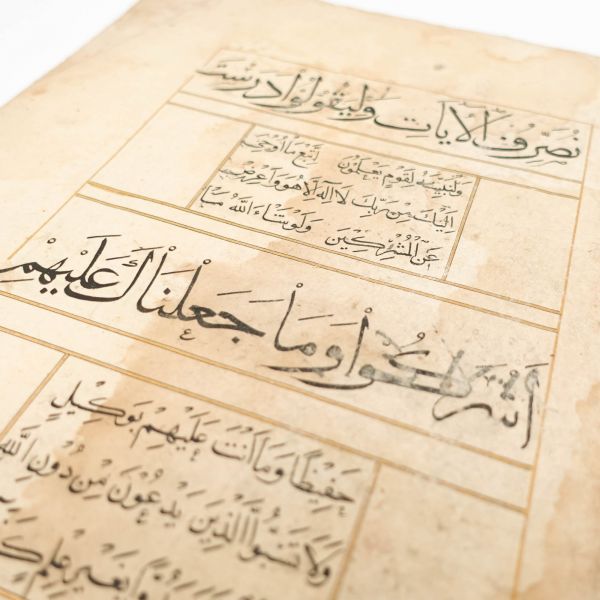 نُصَرِّفُ الْآيَاتِ وَلِيَقُولُوا دَرَسْتَ
وَلِنُبَيِّنَهُ لِقَوْمٍ يَعْلَمُونَ اتَّبِعْ مَا أُوحِيَ
إِلَيْكَ مِنْ رَبِّكَ لَا إِلَهَ إِلَّا هُوَ وَأَعْرِضْ
عَنِ الْمُشْرِكِينَ وَلَوْ شَاءَ اللَّهُ مَا
أَشْرَكُوا وَمَا جَعَلْنَاكَ عَلَيْهِمْ
حَفِيظًا وَمَا أَنْتَ عَلَيْهِمْ بِوَكِيلٍ
وَلَا تَسُبُّوا الَّذِينَ يَدْعُونَ مِنْ دُونِ اللَّهِ
بِغَيْرِ عِلْمٍ